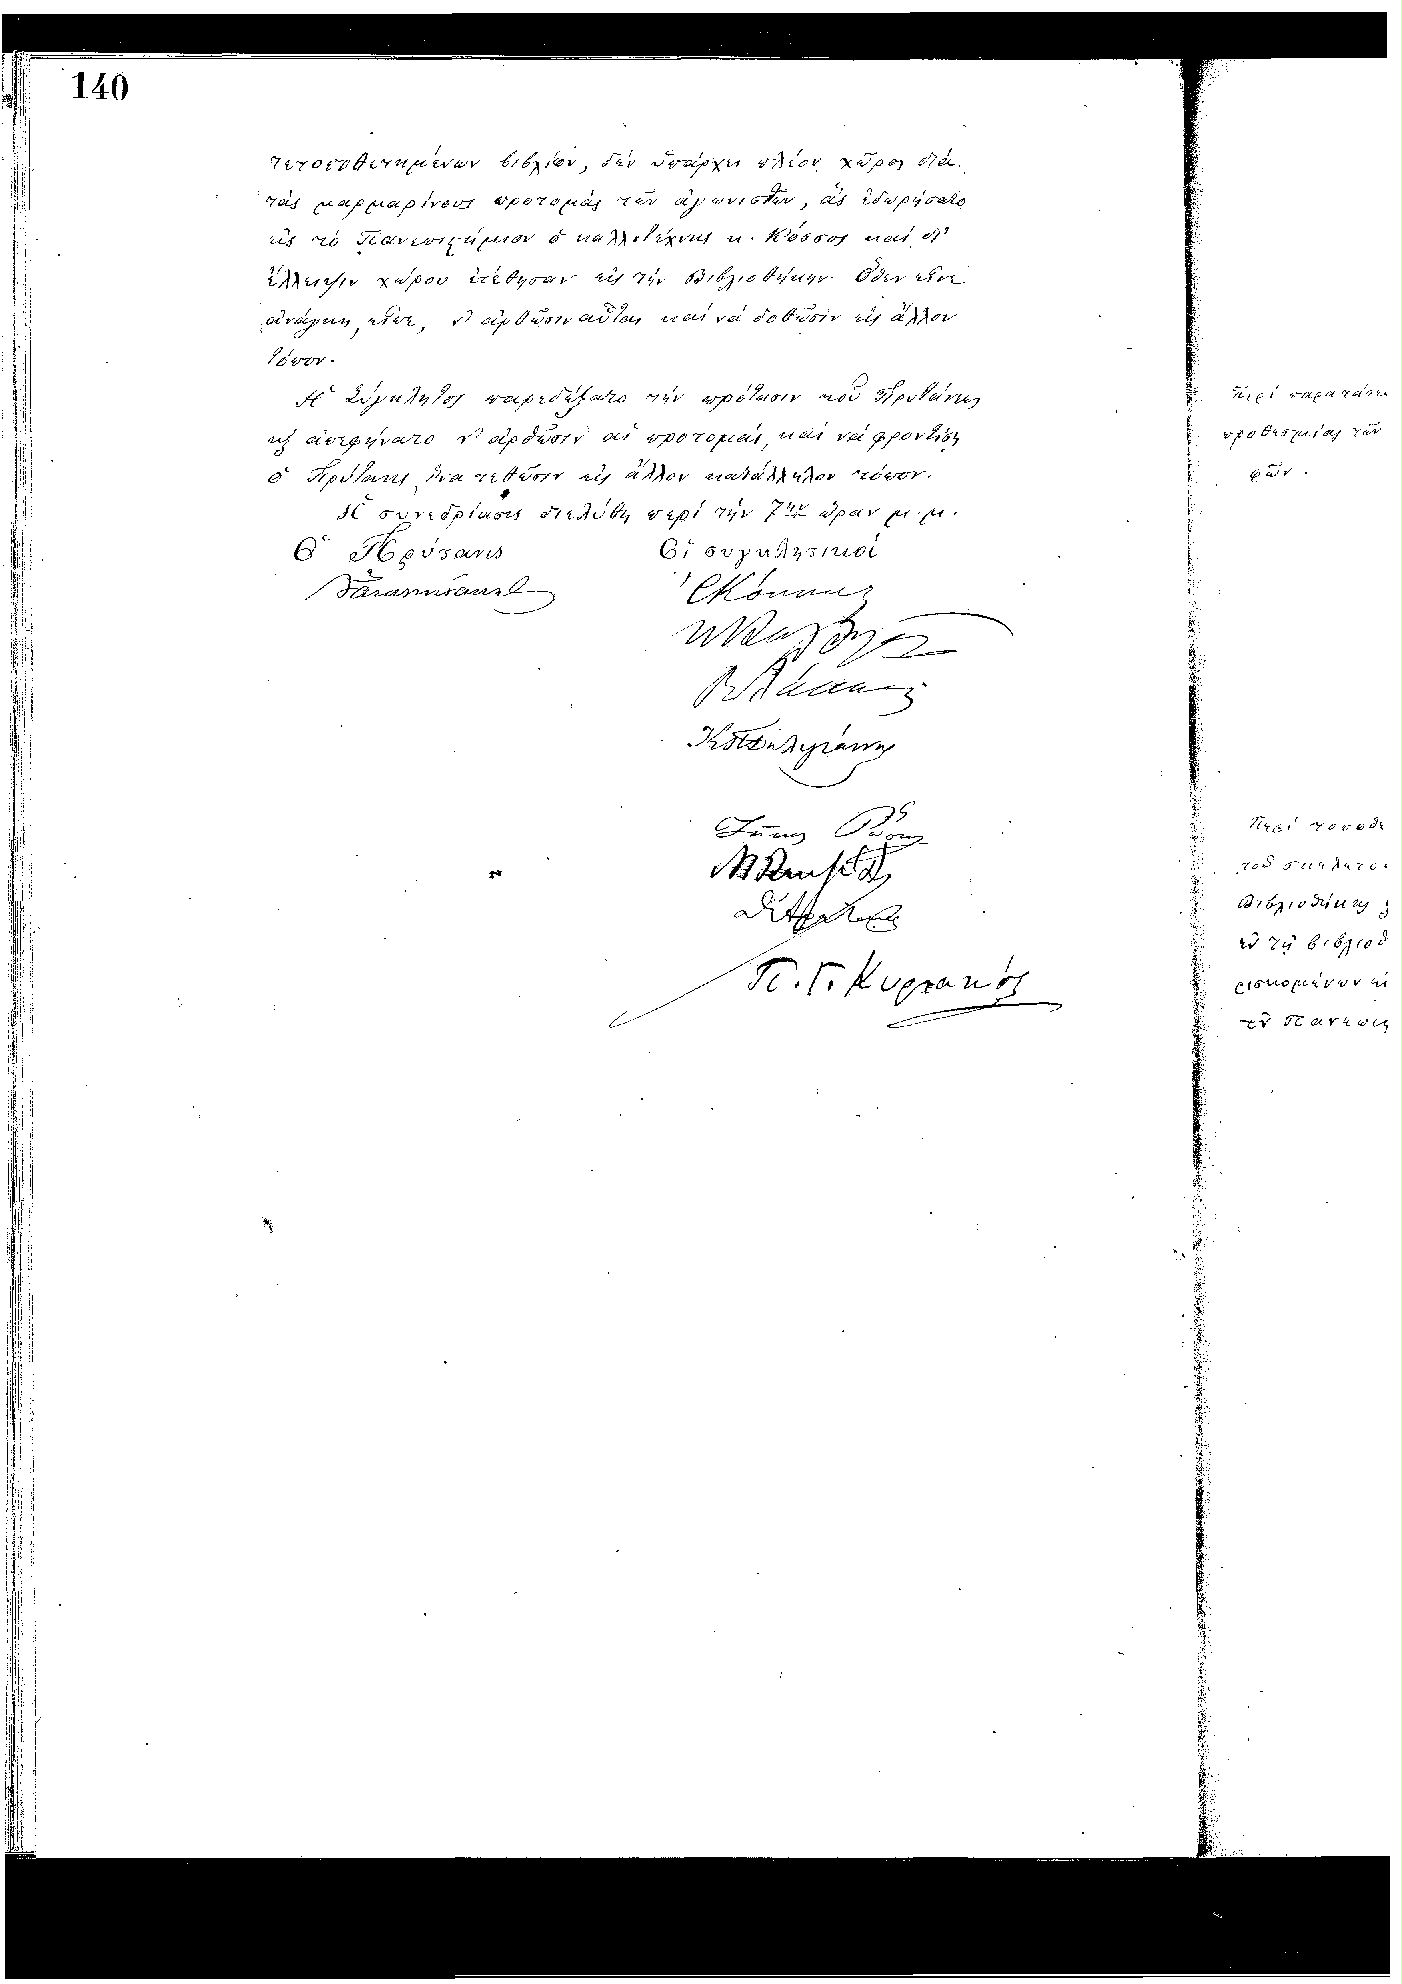 140
τετοποθετημένων βιβλίων, δὲν ὑπάρχει πλέον χῶρος διὰ
τὰς μαρμαρίνους προτομὰς τῶν ἀγωνιστῶν, ἃς ἐδωρήσατο
εἰς τὸ Πανεπιστήμιον ὁ καλλιτέχνης κ. Κόσσος καὶ δι'
ἔλλειψιν χώρου ἐτέθησαν εἰς τὴν Βιβλιοθήκην. Ὅθεν εἶνε
ἀνάγκη, εἶπε, ν' ἀρθῶσιν αὗται καὶ νὰ δοθῶσιν εἰς ἄλλον
τόπον.
Ἡ Σύγκλητος παρεδέξατο τὴν πρότασιν τοῦ Πρυτάνεως
κ̀ ἀπεφήνατο ν' ἀρθῶσιν αἱ προτομαί, καὶ νὰ φροντίσῃ
ὁ Πρύτανις ἵνα τεθῶσιν εἰς ἄλλον κατάλληλον τόπον.
Ἡ συνεδρίασις διελύθη περὶ τὴν 7ην ὥραν μ.μ.
Ὁ Πρύτανις Οἱ συγκλητικοί
Π. Γ. Κυριακός
Περὶ παρατάσε
προθεσμίας τῶν
φῶν.
Περὶ τοποθε
τοῦ
Βιβλιοθήκης
ἐν τῇ βιβλιοθ
ρισκομένων
τῶν Πανεπισ